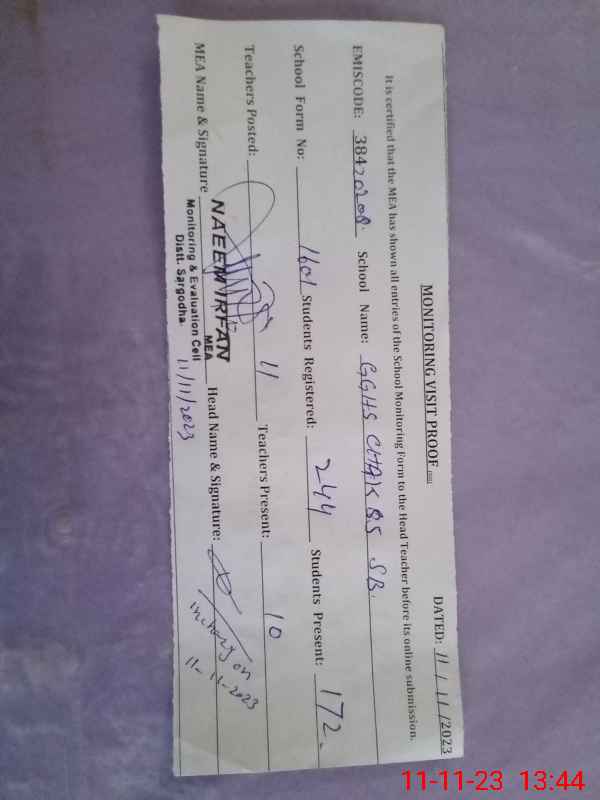 MONITORING VISIT PROOF
DATED: 11/11/2023
It is certified that the MEA has shown all entries of the School Monitoring Form to the Head Teacher before its online submission.
EMISCODE: 38420208 School Name: GGHS CHAK 85 SB.
School Form No: 1601 Students Registered: 244 Students Present: 172
Teachers Posted: 11 Teachers Present: 10
MEA Name & Signature Head Name & Signature:
NAEEM IRFAN
MEA
Monitoring & Evaluation Cell
Distt. Sargodha.
11/11/2023
Incharg on
11-11-2023
11-11-23 13:44